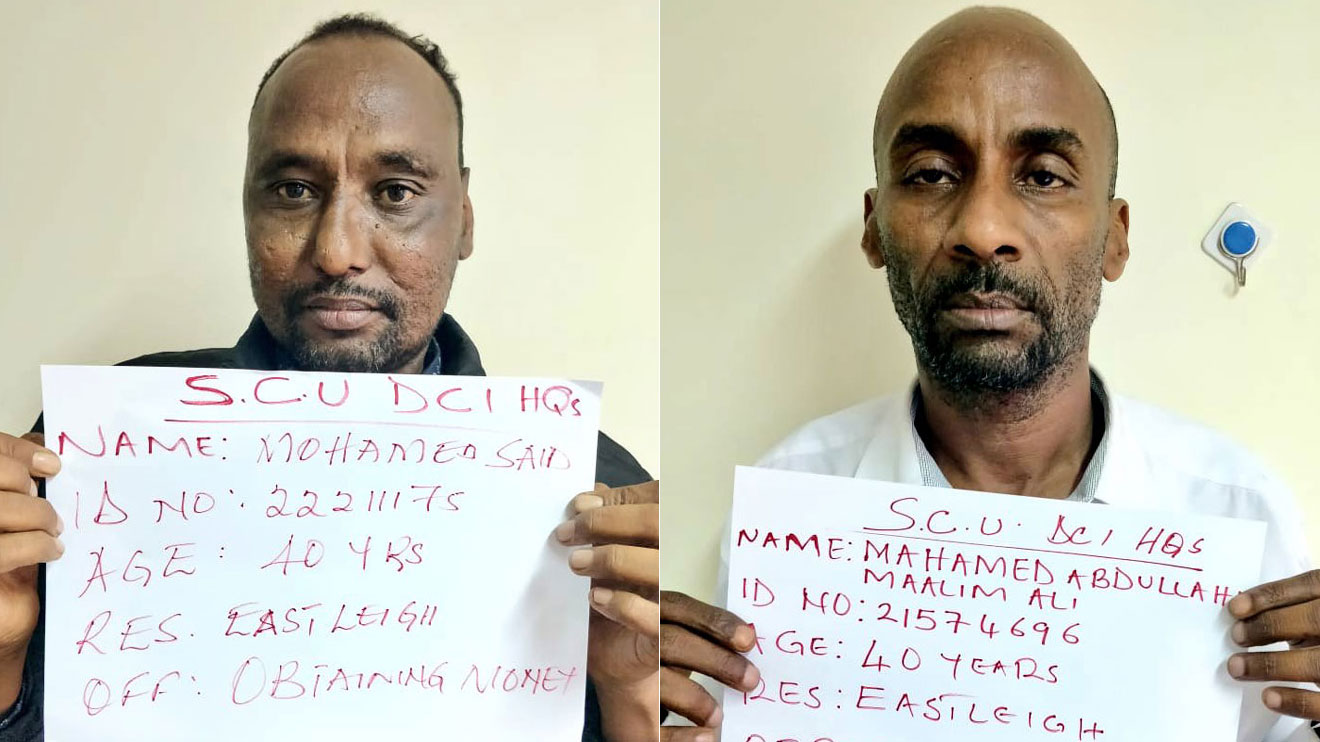 S.C.U DCI HQs
NAME: MOHAMED SAID
ID NO: 22211175
AGE: 40 YRS
RES. EASTLEIGH
OFF: OBTAINING MONEY
S.C.U. DCI HQs
NAME: MAHAMED ABDULLAHI
MAALIM ALI
ID NO: 21574696
AGE: 40 YEARS
RES: EASTLEIGH